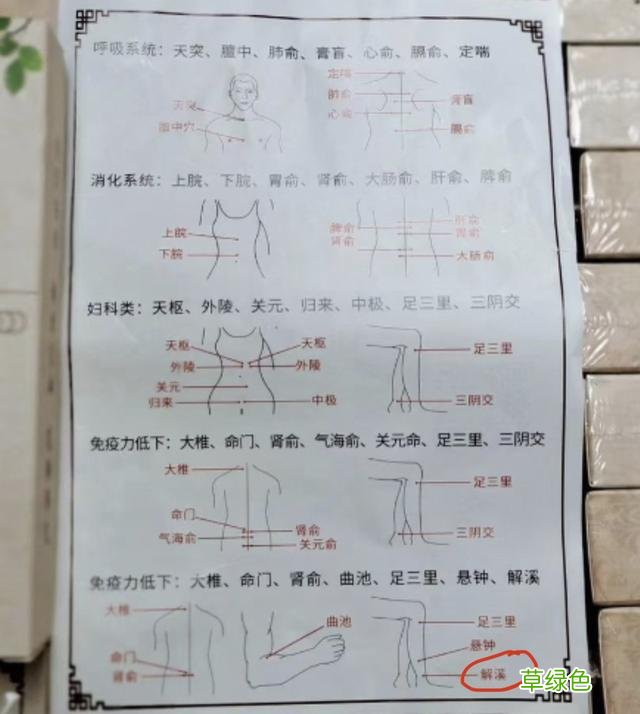 呼吸系统：天突、膻中、肺俞、膏盲、心俞、膈俞、定喘
定喘
肺俞
天突
膏盲
心俞
膻中穴
膈俞
消化系统：上脘、下脘、胃俞、肾俞、大肠俞、肝俞、脾俞
肝俞
上脘
脾俞
胃俞
肾俞
下脘
大肠俞
妇科类：天枢、外陵、关元、归来、中极、足三里、三阴交
天枢
天枢
足三里
外陵
外陵
关元
归来
中极
三阴交
免疫力低下：大椎、命门、肾俞、气海俞、关元命、足三里、三阴交
大椎
足三里
命门
肾俞
三阴交
气海俞
关元俞
免疫力低下：大椎、命门、肾俞、曲池、足三里、悬钟、解溪
大椎
曲池
足三里
悬钟
命门
肾俞
解溪
草绿色